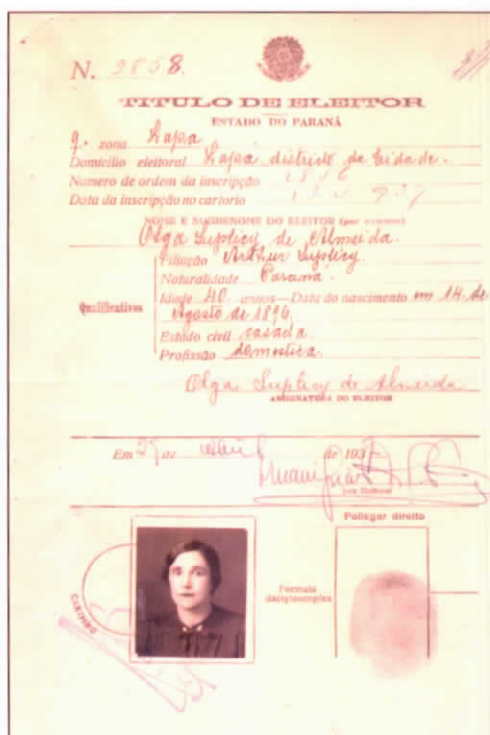 N. 2858.
TITULO DE ELEITOR
ESTADO DO PARANÁ
9ª zona Lapa
Domicilio eleitoral Lapa, districto da Cidade.
Numero de ordem da inscripção
Data da inscripção no cartorio
NOME E SOBRENOME DO ELEITOR (por extenso)
Olga Suplicy de Almeida.
Filiação Arthur Suplicy.
Naturalidade Paraná.
Qualificativos
Idade 40 annos—Data do nascimento em 14 de
Agosto de 1896.
Estado civil casada.
Profissão domestica.
Olga Suplicy de Almeida
ASSIGNATURA DO ELEITOR
Em 29 de Abril de 193
Juiz Eleitoral
Pollegar direito
Formula
dactyloscopica
CARIMBO